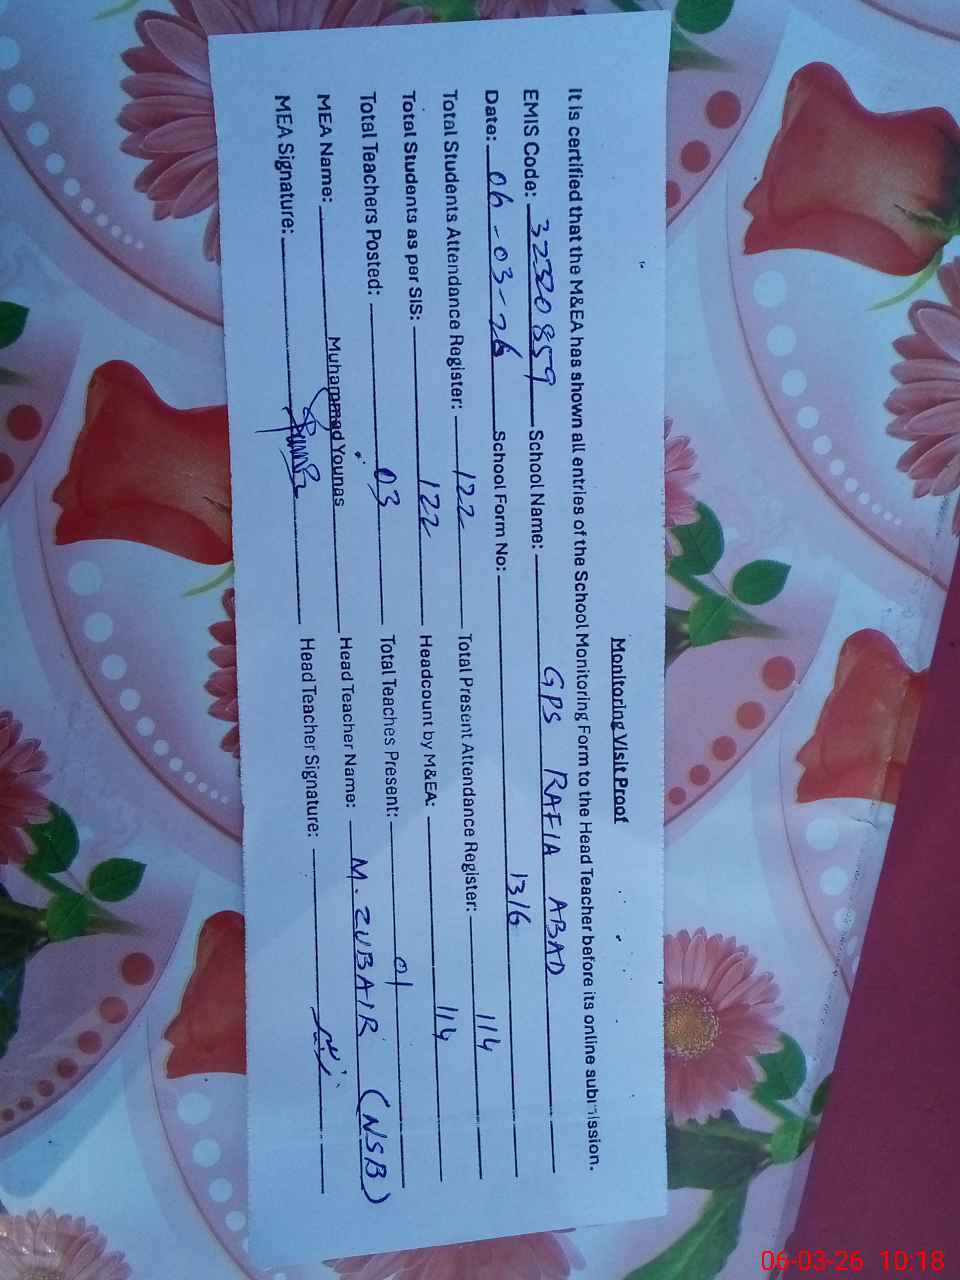 Monitoring Visit Proof
It is certified that the M&EA has shown all entries of the School Monitoring Form to the Head Teacher before its online submission.
EMIS Code: 32320859 School Name: GPS RAFIA ABAD
Date: 06-03-26 School Form No: 1316
Total Students Attendance Register: 122 Total Present Attendance Register: 114
Total Students as per SIS: 122 Headcount by M&EA: 114
Total Teachers Posted: 03 Total Teaches Present: 01
MEA Name: Muhammad Younas Head Teacher Name: M. ZUBAIR (NSB)
MEA Signature: Head Teacher Signature:
06-03-26 10:18